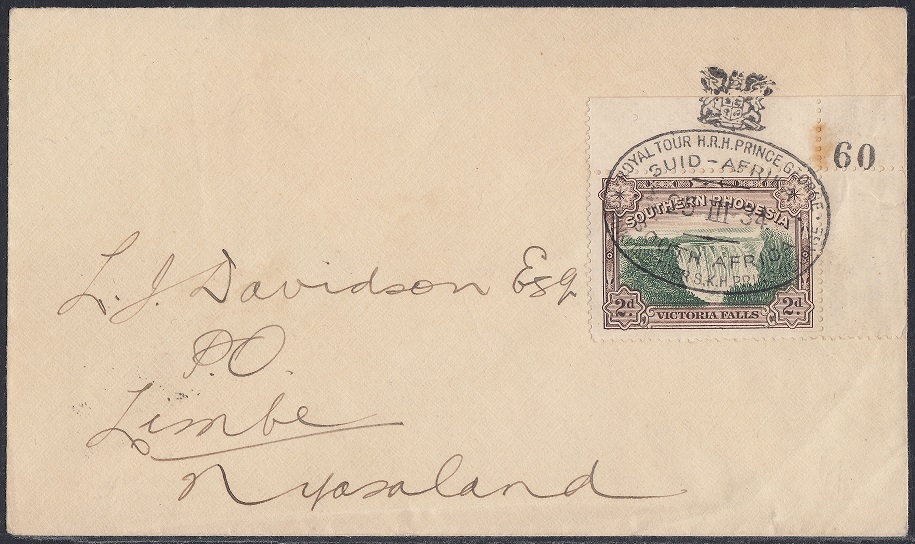 60
ROYAL TOUR H.R.H. PRINCE GEORGE
SUID-AFRI
III 34
SOUTHERN RHODESIA
2d VICTORIA FALLS 2d
L. J. Davidson Esq
P.O.
Limbe
Nyasaland